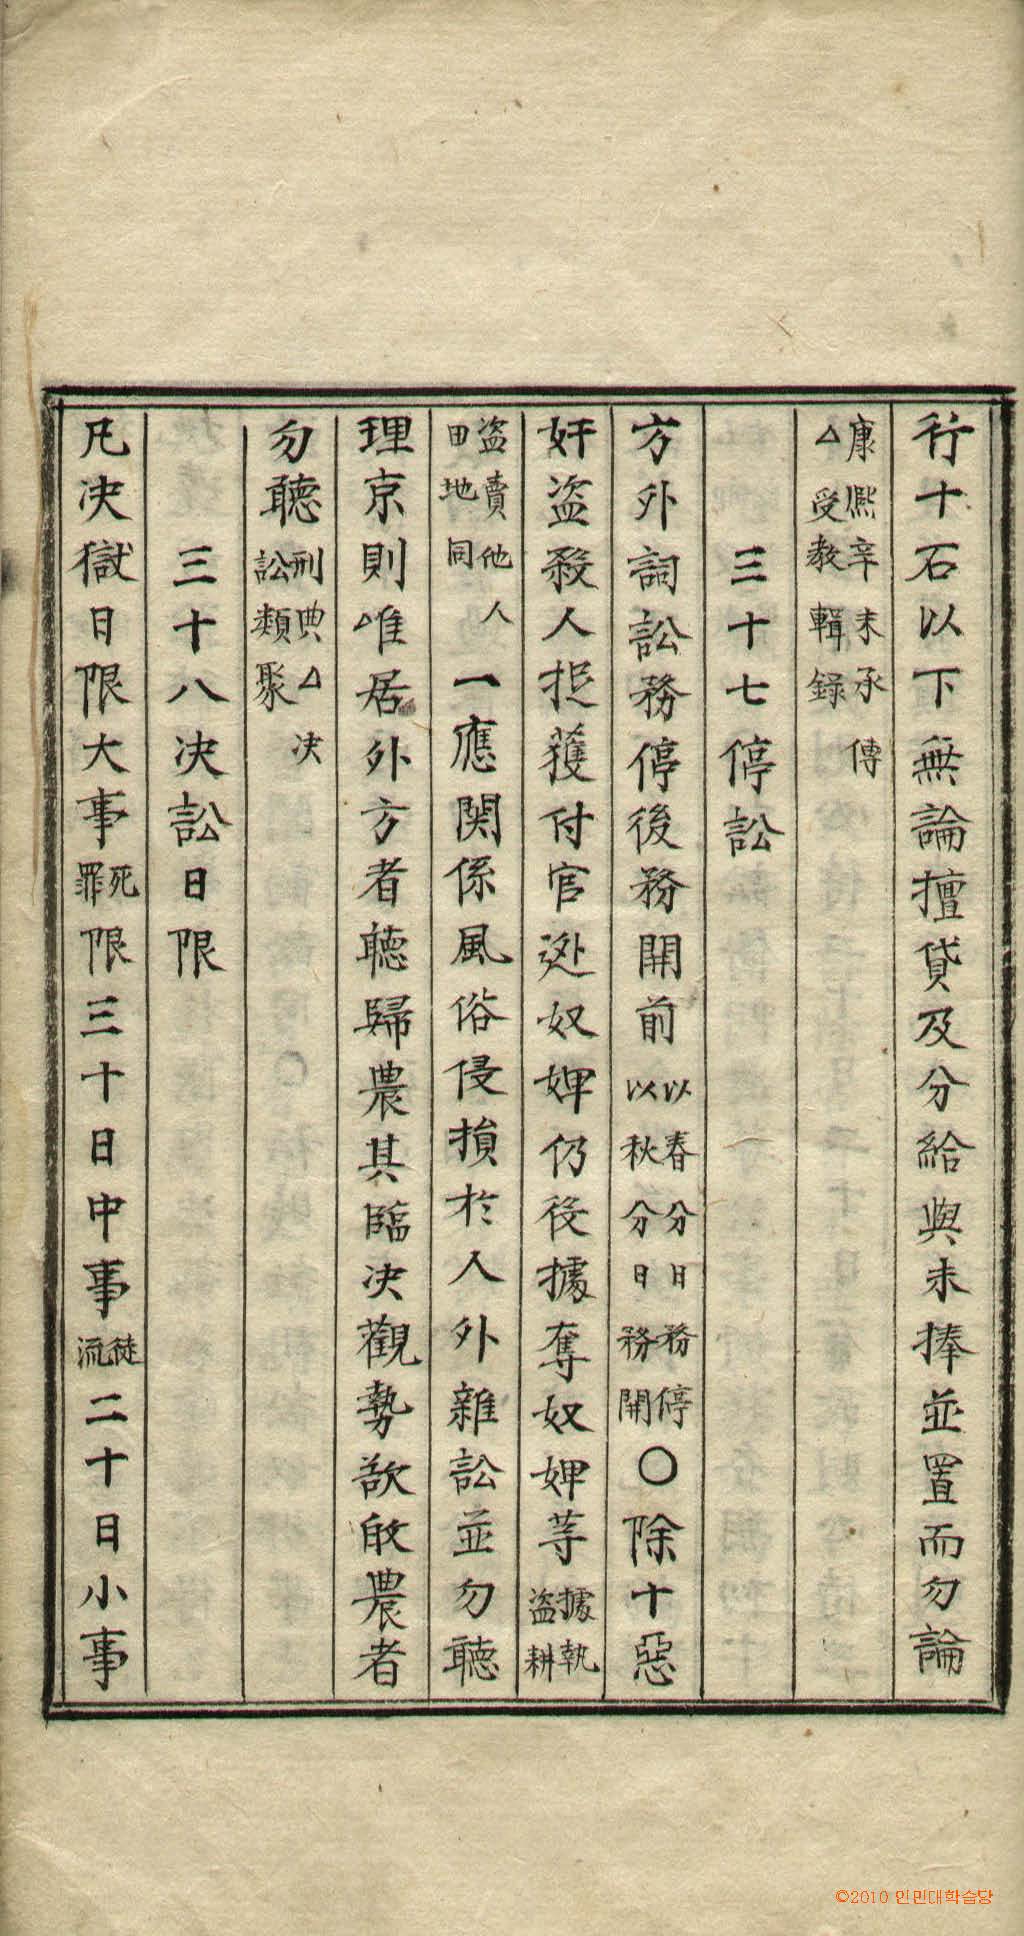 行十石以下無論擅貸及分給與未捧並置而勿論
康熙辛未承傳
△受教輯錄
三十七停訟
方外詞訟務停後務開前以春分日務停以秋分日務開〇除十惡
奸盜殺人捉獲付官逃奴婢仍役據奪奴婢等據執盜耕
盜賣他人田地同一應関係風俗侵損於人外雜訟並勿聽
理京則△唯居外方者聽歸農其臨决觀勢故農者
勿聽刑典△决訟類聚
三十八决訟日限
凡决獄日限大事死罪限三十日中事徒流二十日小事
©2010 인민대학습당